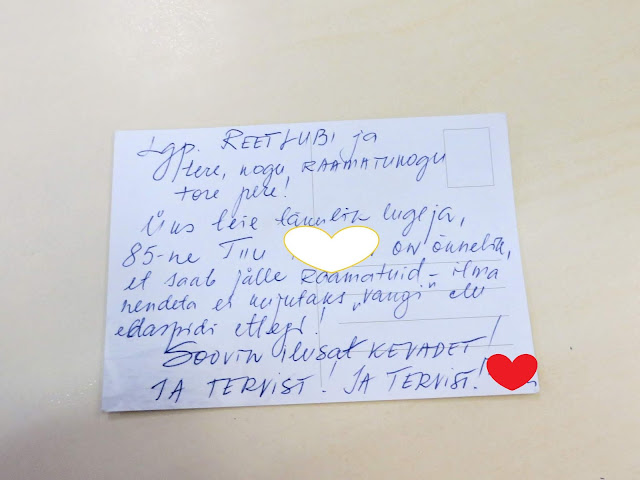 Lgp. REET LUBI ja
tere, kogu, RAAMATUKOGU
tore pere!
Üks teie tänulik lugeja,
85-ne Tiiu on õnnelik,
et saab jälle Raamatuid - ilma
nendeta ei kujutaks „vangi" elu
edaspidi ettegi!
SOOVIN ilusat KEVADET!
JA TERVIST! JA TERVIST!